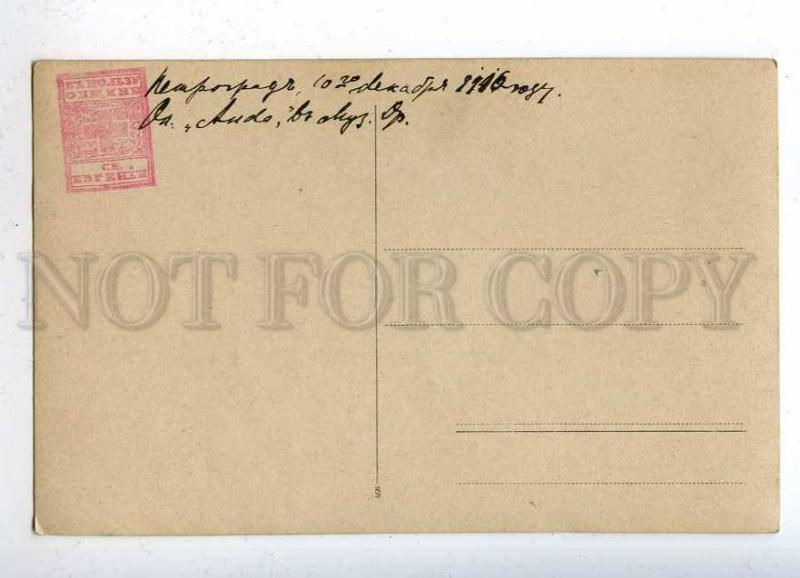 ВЪ ПОЛЬЗУ
ОБЩИНЫ
СВ.
ЕВГЕНІИ
Петроградъ, 10го декабря 1916 году.
Оп. „Аида", въ Муз. Др.
NOT FOR COPY
§